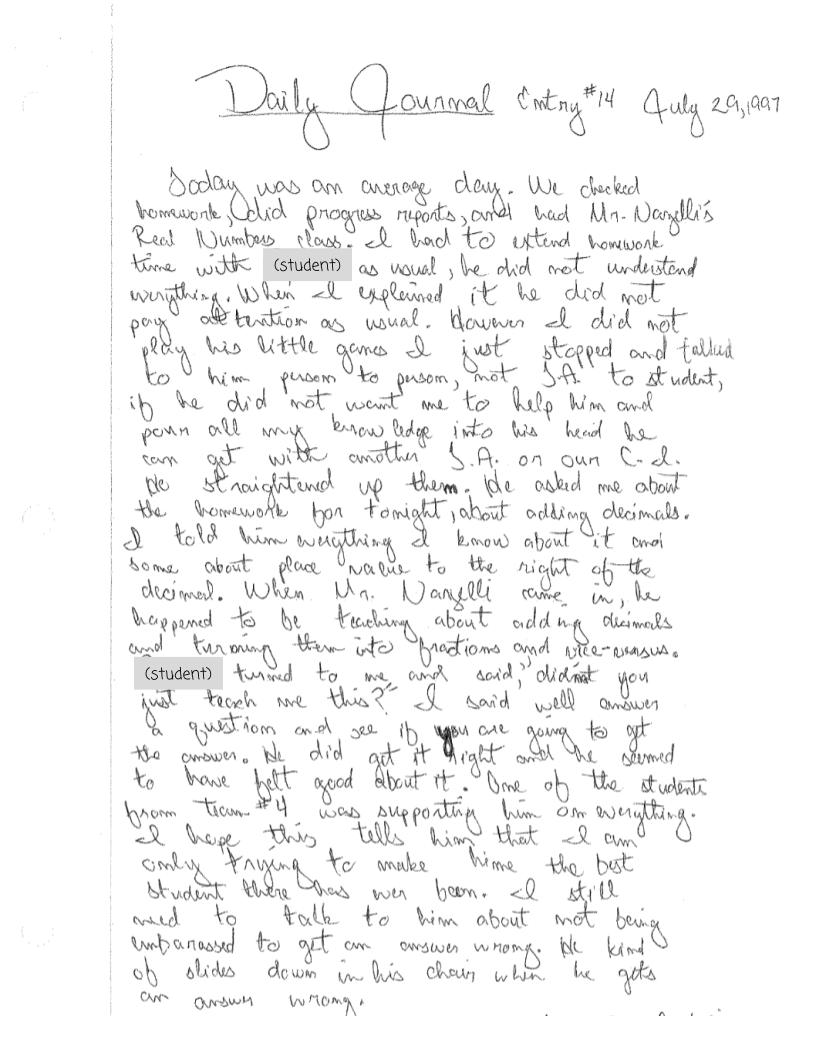 Daily Journal Entry #14 July 29, 1997
Today was an average day. We checked
homework, did progress reports, and had Mr. Narzelli's
Real Numbers class. I had to extend homework
time with (student) as usual, he did not understand
everything. When I explained it he did not
pay attention as usual. However I did not
play his little games I just stopped and talked
to him person to person, not J.A. to student,
if he did not want me to help him and
pour all my knowledge into his head he
can get with another J.A. or our C.I.
He straightened up them. He asked me about
the homework for tonight, about adding decimals.
I told him everything I know about it and
some about place value to the right of the
decimal. When Mr. Narzelli came in, he
happened to be teaching about adding decimals
and turning them into fractions and vice-versus.
(student) turned to me and said, "didn't you
just teach me this?" I said well answer
a question and see if you are going to get
the answer. He did get it right and he seemed
to have felt good about it. One of the students
from team #4 was supporting him on everything.
I hope this tells him that I am
only trying to make hime the best
student there has ever been. I still
need to talk to him about not being
embarassed to get an answer wrong. He kind
of slides down in his chair when he gets
an answer wrong.